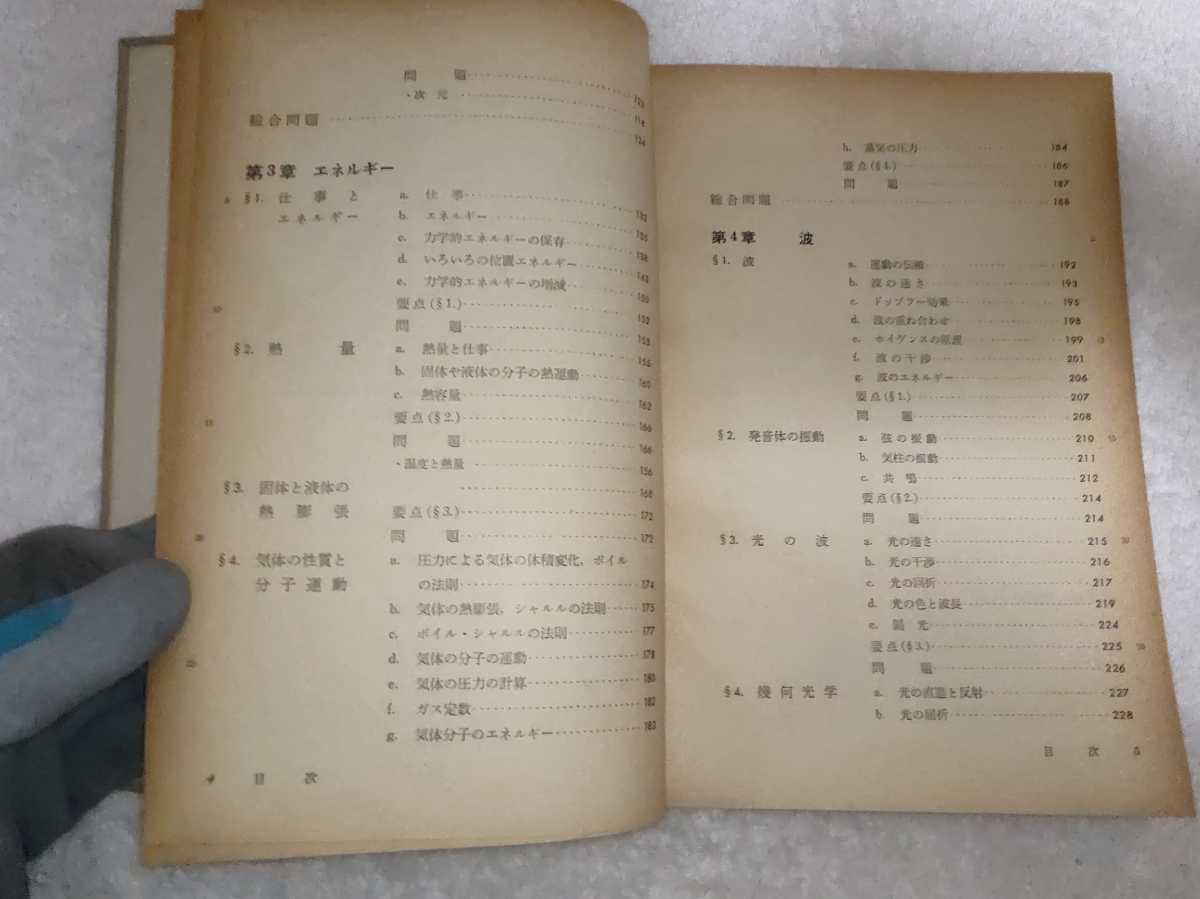 問　題 123
・次元 114
総合問題 124
第3章 エネルギー
§1. 仕事と a. 仕事 132
エネルギー b. エネルギー 135
c. 力学的エネルギーの保存 138
d. いろいろの位置エネルギー 143
e. 力学的エネルギーの増減 150
要点(§1.) 152
問　題 153
§2. 熱　量 a. 熱量と仕事 155
b. 固体や液体の分子の熱運動 160
c. 熱容量 162
要点(§2.) 166
問　題 166
・温度と熱量 156
§3. 固体と液体の 168
熱膨張 要点(§3.) 172
問　題 172
§4. 気体の性質と a. 圧力による気体の体積変化,ボイル
分子運動 の法則 174
b. 気体の熱膨張,シャルルの法則 175
c. ボイル・シャルルの法則 177
d. 気体の分子の運動 178
e. 気体の圧力の計算 180
f. ガス定数 182
g. 気体分子のエネルギー 183
4 目　次
h. 蒸気の圧力 184
要点(§4.) 186
問　題 187
総合問題 188
第4章　波
§1. 波 a. 運動の伝播 192
b. 波の速さ 193
c. ドップラー効果 195
d. 波の重ね合わせ 198
e. ホイヘンスの原理 199
f. 波の干渉 201
g. 波のエネルギー 206
要点(§1.) 207
問　題 208
§2. 発音体の振動 a. 弦の振動 210
b. 気柱の振動 211
c. 共鳴 212
要点(§2.) 214
問　題 214
§3. 光の波 a. 光の速さ 215
b. 光の干渉 216
c. 光の回折 217
d. 光の色と波長 219
e. 偏光 224
要点(§3.) 225
問　題 226
§4. 幾何光学 a. 光の直進と反射 227
b. 光の屈折 228
目　次 5